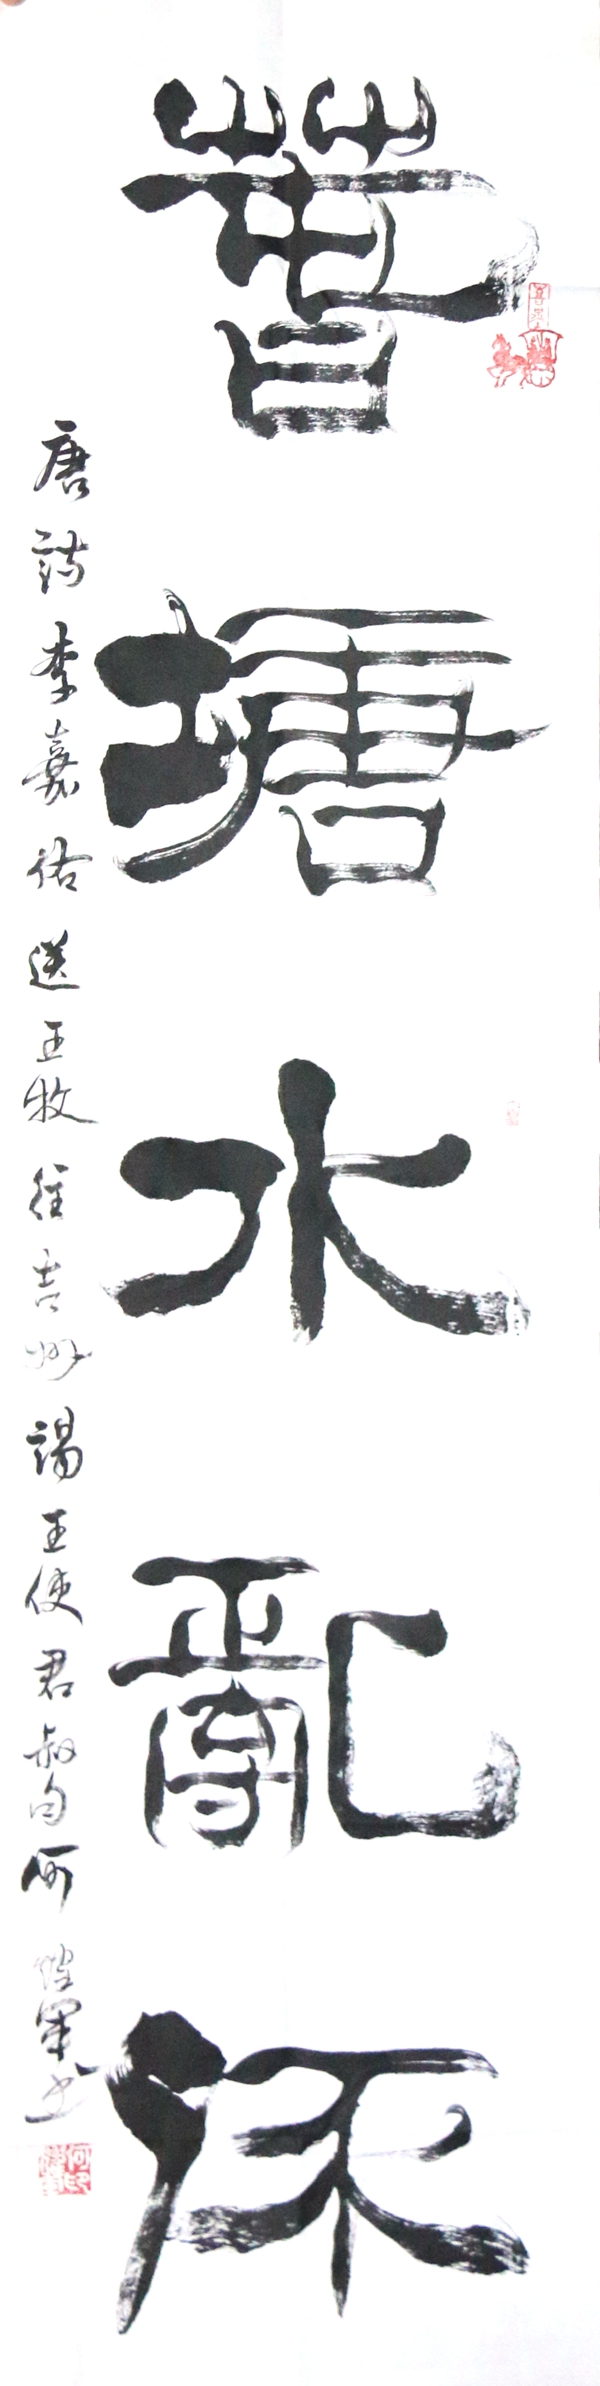 萅塘水亂流
唐詩李嘉佑送王牧往吉州謁王使君叔句何軍书